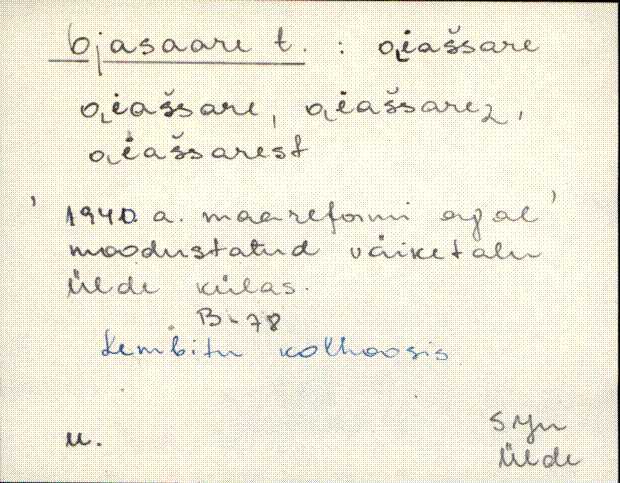 Ojasaare t. : oi̯aššare
oi̯aššare, oi̯aššarez,
oi̯aššarest
' 1940. a. maareformi ajal '
moodustatud väiketalu
Ülde külas.
B-78
Lembitu kolhoosis
u.
SJn
Ülde